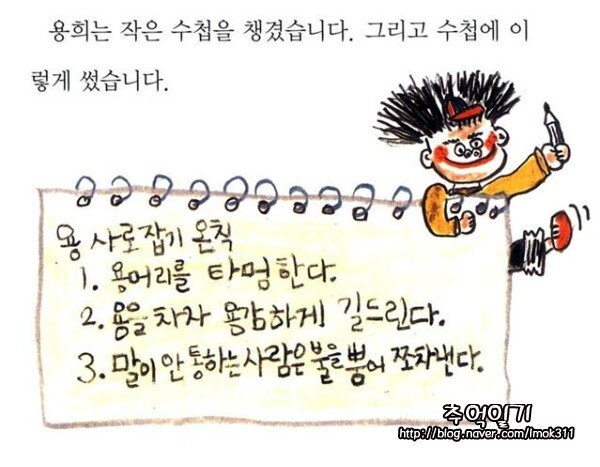 용희는 작은 수첩을 챙겼습니다. 그리고 수첩에 이
렇게 썼습니다.
용 사로잡기 온칙
1. 용어리를 타멈한다.
2. 용을 차자 용감하게 길드린다.
3. 말이 안 통하는 사람은 불을 뿜어 쪼차낸다.
추억일기
http://blog.naver.com/lmok311